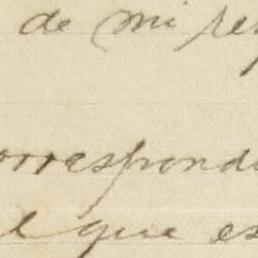 de mi res
orrespondi
l que es